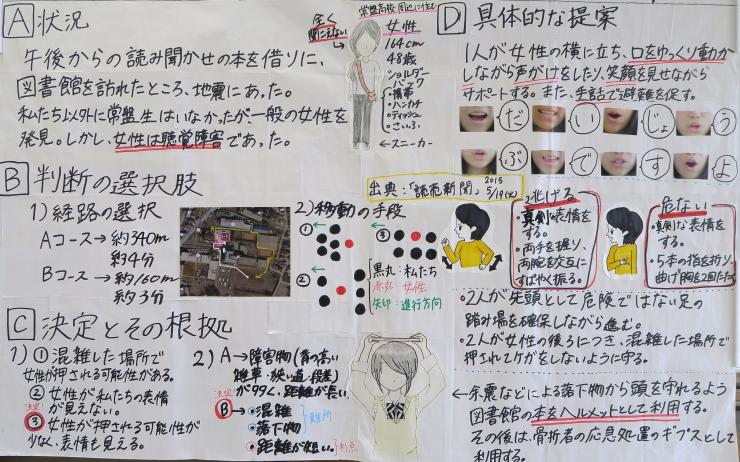 A 状況
午後からの読み聞かせの本を借りに、
図書館を訪れたところ、地震にあった。
私たち以外に常盤生はいなかったが、一般の女性を
発見。しかし、女性は聴覚障害であった。
全く
聞こえない
常盤高校周辺に住む
女性
164cm
48歳
ショルダー
バック
・携帯
・ハンカチ
・ティッシュ
・さいふ
←スニーカー
B 判断の選択肢
1) 経路の選択
Aコース→約340m
約4分
Bコース→約160m
約3分
2) 移動の手段
①
②
③
黒丸:私たち
赤丸:女性
矢印:進行方向
出典:「読売新聞」2015 5/19(火)
C 決定とその根拠
1) ① 混雑した場所で
女性が押される可能性がある。
② 女性が私たちの表情
が見えない。
決定
③ 女性が押される可能性が
少なく、表情も見える。
2) A→障害物(背の高い
雑草・狭い道・段差)
が多く、距離が長い。
決定
B→・混雑
・落下物
・距離が短い。
}利点
D 具体的な提案
1人が女性の横に立ち、口をゆっくり動か
しながら声がけをしたり、笑顔を見せながら
サポートする。また、手話で避難を促す。
だいじょう
ぶですよ
逃げる
・真剣な表情を
する。
・両手を握り、
両腕を交互に
すばやく振る。
危ない
・真剣な表情を
する。
・5本の指を折り、
曲げ胸を2回たたく
・2人が先頭として危険ではない足の
踏み場を確保しながら進む。
・2人が女性の後ろにつき、混雑した場所で
押されてケガをしないように守る。
←余震などによる落下物から頭を守れるよう
図書館の本をヘルメットとして利用する。
その後は、骨折者の応急処置のギプスとして
利用する。